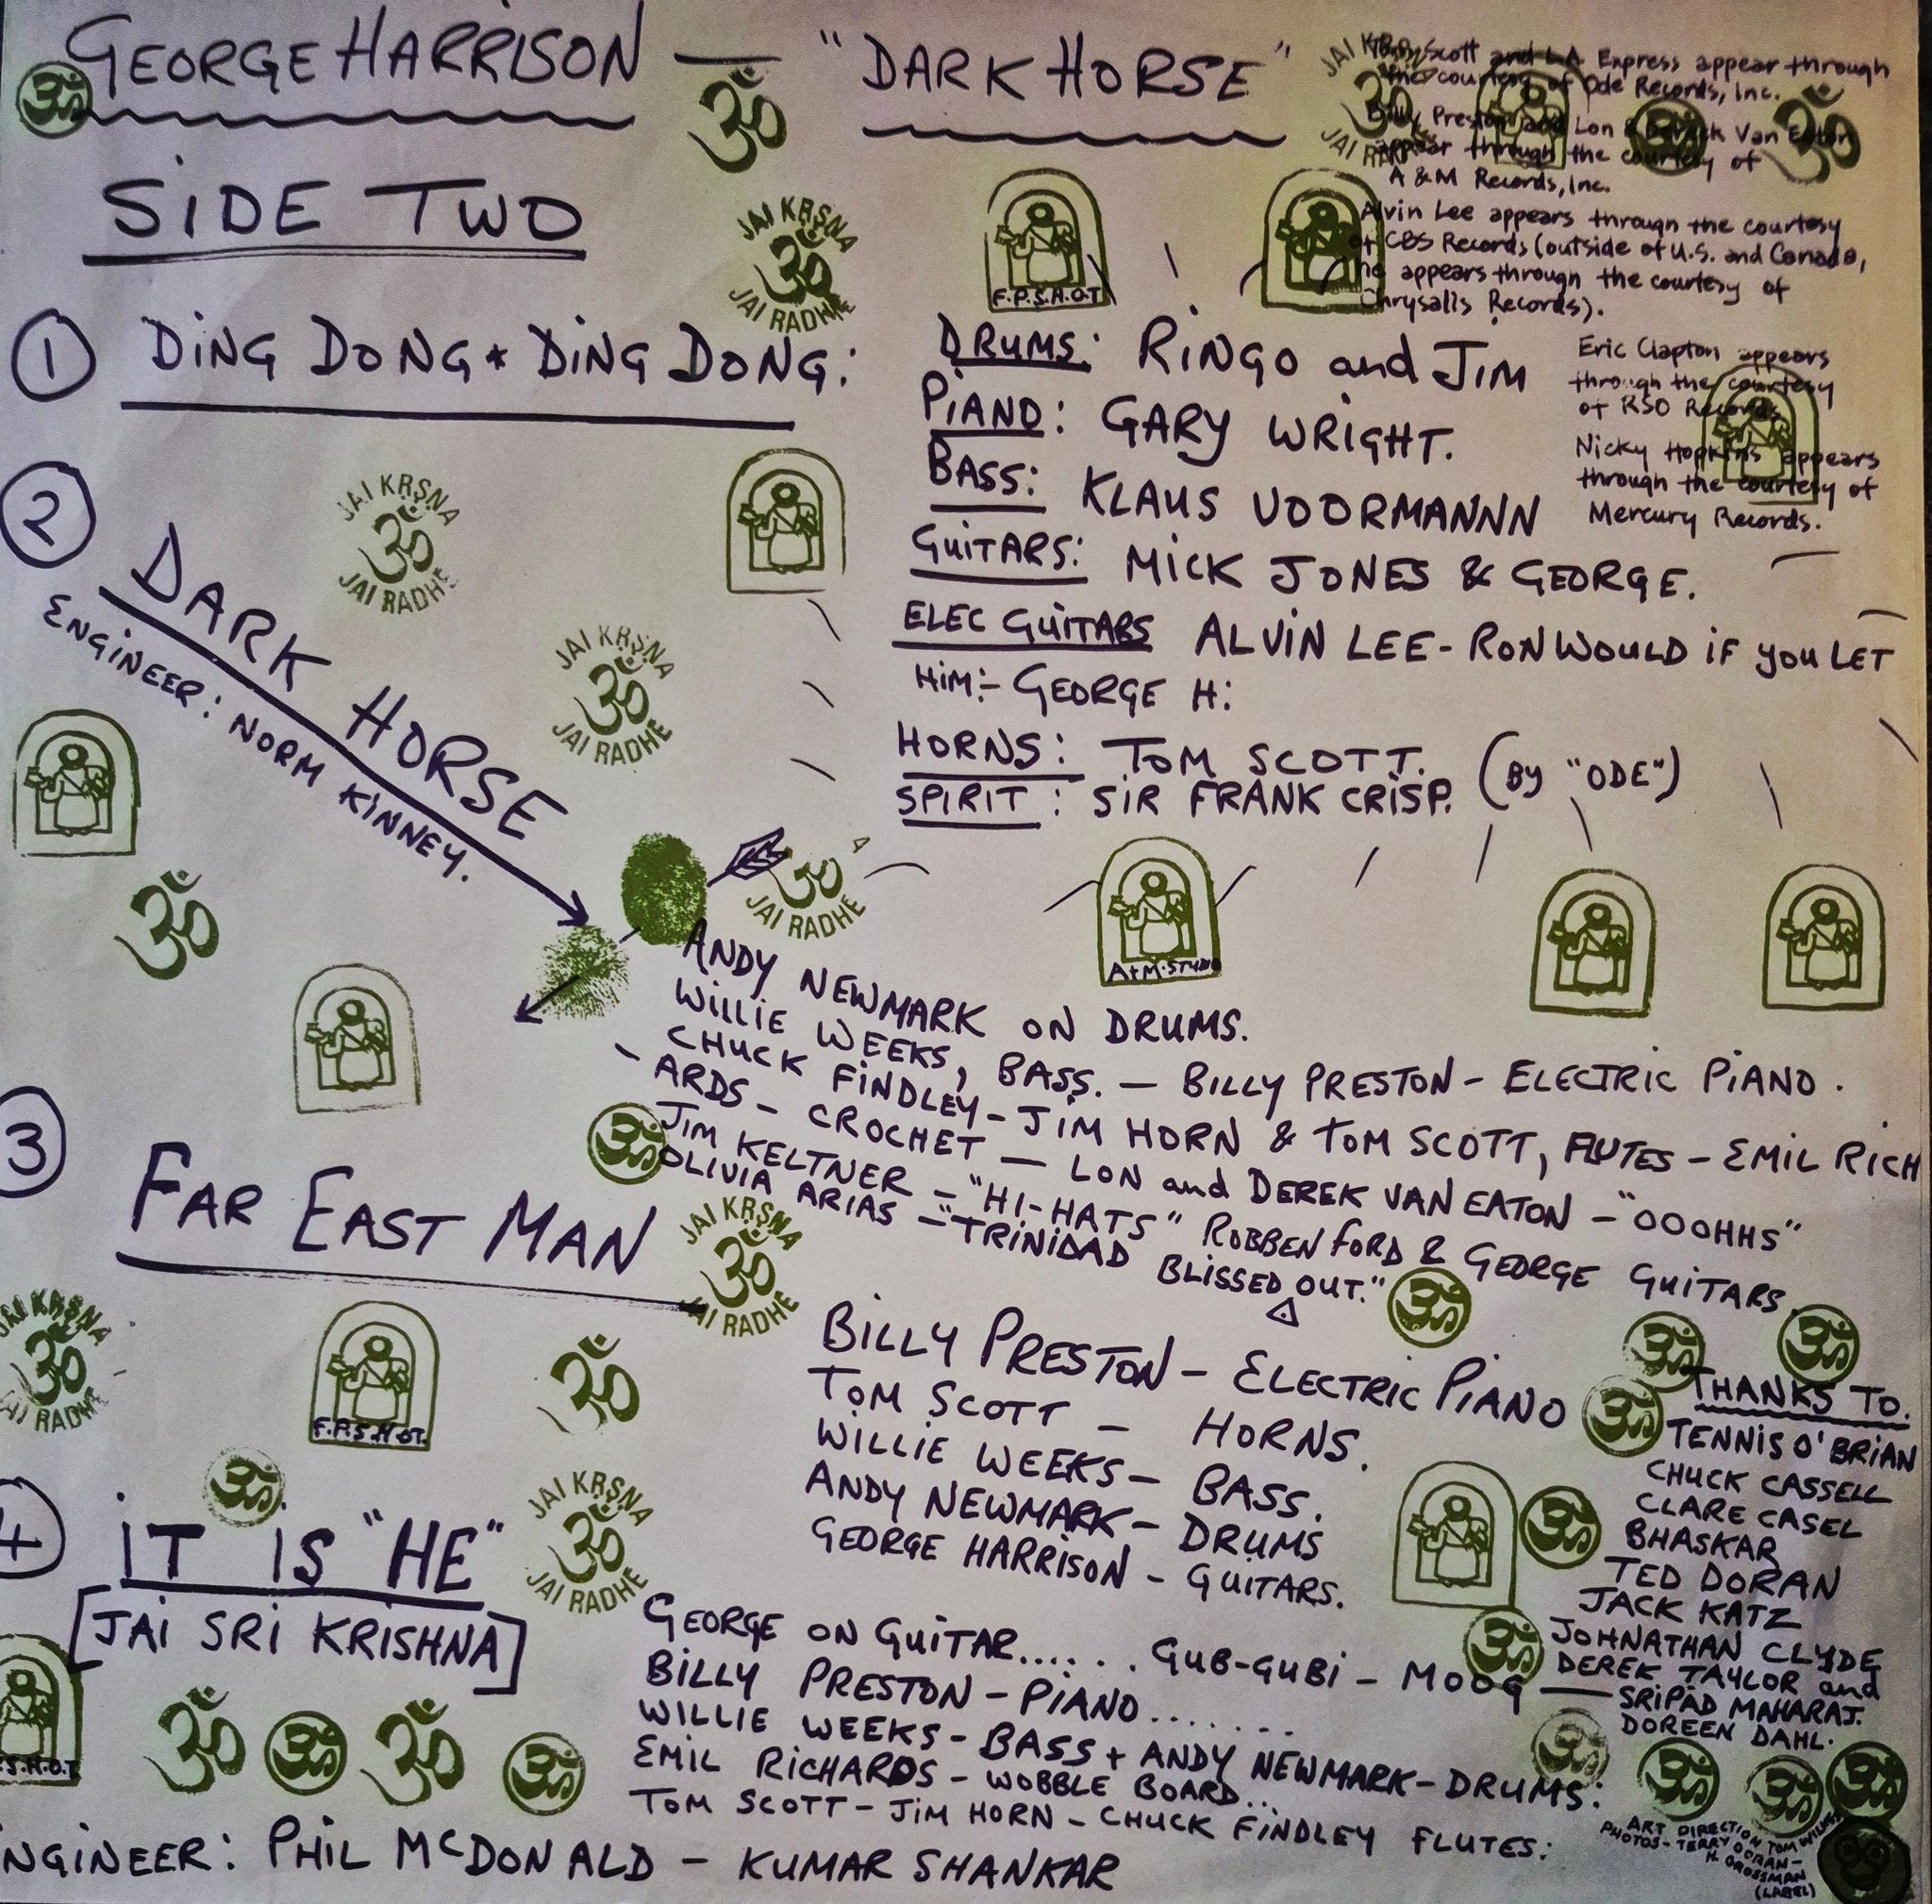 GEORGE HARRISON — "DARK HORSE"
SIDE TWO
Tom Scott and L.A. Express appear through
the courtesy of Ode Records, Inc.
Billy Preston and Lon & Derrek Van Eaton
appear through the courtesy of
A & M Records, Inc.
Alvin Lee appears through the courtesy
of CBS Records (outside of U.S. and Canada,
he appears through the courtesy of
Chrysalis Records).
Eric Clapton appears
through the courtesy
of RSO Records
Nicky Hopkins appears
through the courtesy of
Mercury Records.
① DING DONG * DING DONG:
DRUMS: RINGO and JIM
PIANO: GARY WRIGHT.
BASS: KLAUS VOORMANNN
GUITARS: MICK JONES & GEORGE.
ELEC GUITARS ALVIN LEE - RON WOULD IF YOU LET
HIM:- GEORGE H:
HORNS: TOM SCOTT. (BY "ODE")
SPIRIT: SIR FRANK CRISP.
② DARK HORSE
ENGINEER: NORM KINNEY.
ANDY NEWMARK ON DRUMS.
WILLIE WEEKS, BASS. — BILLY PRESTON - ELECTRIC PIANO.
CHUCK FINDLEY - JIM HORN & TOM SCOTT, FLUTES - EMIL RICH
- ARDS - CROCHET — LON and DEREK VAN EATON - "OOOHHS"
JIM KELTNER - "HI-HATS" ROBBEN FORD & GEORGE GUITARS.
OLIVIA ARIAS - "TRINIDAD BLISSED OUT."
③ FAR EAST MAN
BILLY PRESTON - ELECTRIC PIANO
TOM SCOTT - HORNS.
WILLIE WEEKS - BASS.
ANDY NEWMARK - DRUMS
GEORGE HARRISON - GUITARS.
④ IT IS "HE"
[JAI SRI KRISHNA]
GEORGE ON GUITAR...... GUB-GUBI - MOOG —
BILLY PRESTON - PIANO.......
WILLIE WEEKS - BASS + ANDY NEWMARK - DRUMS:
EMIL RICHARDS - WOBBLE BOARD...
TOM SCOTT - JIM HORN - CHUCK FINDLEY FLUTES:
NGINEER: PHIL McDONALD - KUMAR SHANKAR
THANKS TO.
TENNIS O'BRIAN
CHUCK CASSELL
CLARE CASEL
BHASKAR
TED DORAN
JACK KATZ
JOHNATHAN CLYDE
DEREK TAYLOR and
SRIPAD MAHARAJ.
DOREEN DAHL.
ART DIRECTION TOM WILKES
PHOTOS - TERRY DORAN -
H. GROSSMAN
(LABEL)
JAI KRSNA
ॐ
JAI RADHE
F.P.S.H.O.T.
A+M.STUDIO
F.P.S.H.O.T.
.S.H.O.T.